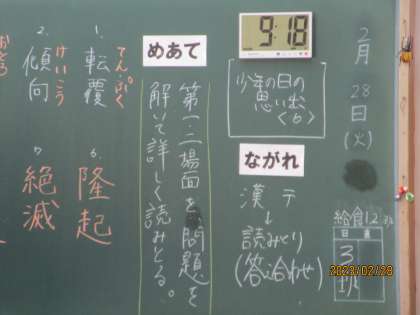 2月
28日
(火)
給食12
日直
3班
9:18
少年の日の
思い出
〈6〉
ながれ
漢テ
↓
読みとり
(答え合わせ)
めあて
第一・二場面を問題を
解いて詳しく読みとる。
1.
転覆
てんぷく
2.
傾向
けいこう
6.
隆起
7.
絶滅
2023/02/28